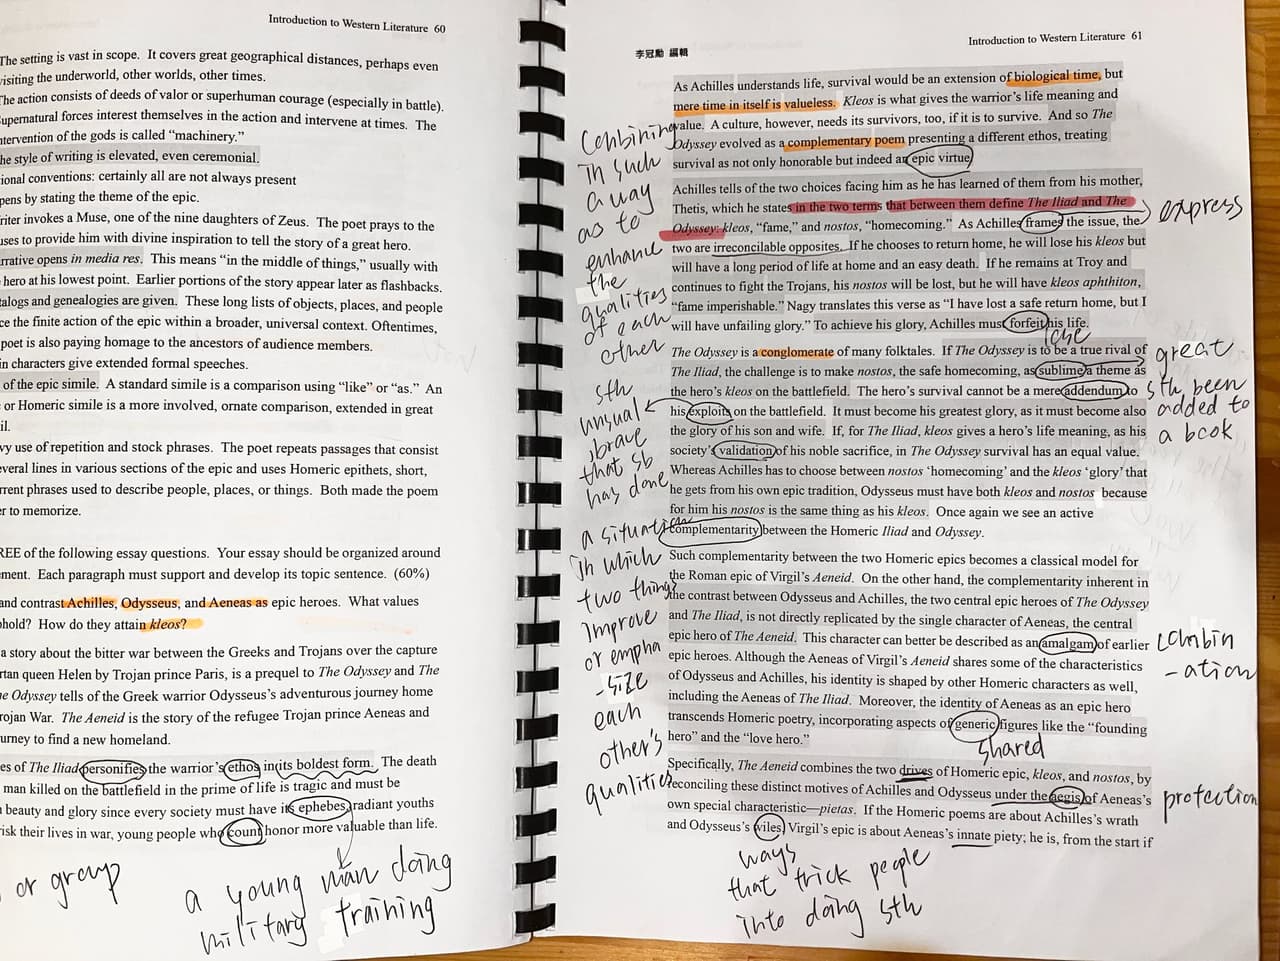 Introduction to Western Literature 60
The setting is vast in scope. It covers great geographical distances, perhaps even
visiting the underworld, other worlds, other times.
The action consists of deeds of valor or superhuman courage (especially in battle).
Supernatural forces interest themselves in the action and intervene at times. The
ntervention of the gods is called “machinery.”
he style of writing is elevated, even ceremonial.
ional conventions: certainly all are not always present
pens by stating the theme of the epic.
riter invokes a Muse, one of the nine daughters of Zeus. The poet prays to the
uses to provide him with divine inspiration to tell the story of a great hero.
arrative opens in media res. This means “in the middle of things,” usually with
hero at his lowest point. Earlier portions of the story appear later as flashbacks.
talogs and genealogies are given. These long lists of objects, places, and people
ce the finite action of the epic within a broader, universal context. Oftentimes,
poet is also paying homage to the ancestors of audience members.
in characters give extended formal speeches.
of the epic simile. A standard simile is a comparison using “like” or “as.” An
or Homeric simile is a more involved, ornate comparison, extended in great
il.
vy use of repetition and stock phrases. The poet repeats passages that consist
everal lines in various sections of the epic and uses Homeric epithets, short,
rrent phrases used to describe people, places, or things. Both made the poem
er to memorize.
REE of the following essay questions. Your essay should be organized around
ment. Each paragraph must support and develop its topic sentence. (60%)
and contrast Achilles, Odysseus, and Aeneas as epic heroes. What values
phold? How do they attain kleos?
a story about the bitter war between the Greeks and Trojans over the capture
rtan queen Helen by Trojan prince Paris, is a prequel to The Odyssey and The
he Odyssey tells of the Greek warrior Odysseus’s adventurous journey home
rojan War. The Aeneid is the story of the refugee Trojan prince Aeneas and
urney to find a new homeland.
es of The Iliad personifies the warrior’s ethos in its boldest form. The death
man killed on the battlefield in the prime of life is tragic and must be
beauty and glory since every society must have its ephebes, radiant youths
risk their lives in war, young people who count honor more valuable than life.
or group
a young man doing
military training
李冠勳 編輯
Introduction to Western Literature 61
As Achilles understands life, survival would be an extension of biological time, but
mere time in itself is valueless. Kleos is what gives the warrior’s life meaning and
value. A culture, however, needs its survivors, too, if it is to survive. And so The
Odyssey evolved as a complementary poem presenting a different ethos, treating
survival as not only honorable but indeed an epic virtue
Achilles tells of the two choices facing him as he has learned of them from his mother,
Thetis, which he states in the two terms that between them define The Iliad and The
Odyssey: kleos, “fame,” and nostos, “homecoming.” As Achilles frames the issue, the
two are irreconcilable opposites. If he chooses to return home, he will lose his kleos but
will have a long period of life at home and an easy death. If he remains at Troy and
continues to fight the Trojans, his nostos will be lost, but he will have kleos aphthiton,
“fame imperishable.” Nagy translates this verse as “I have lost a safe return home, but I
will have unfailing glory.” To achieve his glory, Achilles must forfeit his life.
lose
The Odyssey is a conglomerate of many folktales. If The Odyssey is to be a true rival of
The Iliad, the challenge is to make nostos, the safe homecoming, as sublime a theme as
the hero’s kleos on the battlefield. The hero’s survival cannot be a mere addendum to
his exploits on the battlefield. It must become his greatest glory, as it must become also
the glory of his son and wife. If, for The Iliad, kleos gives a hero’s life meaning, as his
society’s validation of his noble sacrifice, in The Odyssey survival has an equal value.
Whereas Achilles has to choose between nostos ‘homecoming’ and the kleos ‘glory’ that
he gets from his own epic tradition, Odysseus must have both kleos and nostos because
for him his nostos is the same thing as his kleos. Once again we see an active
complementarity between the Homeric Iliad and Odyssey.
Such complementarity between the two Homeric epics becomes a classical model for
the Roman epic of Virgil’s Aeneid. On the other hand, the complementarity inherent in
the contrast between Odysseus and Achilles, the two central epic heroes of The Odyssey
and The Iliad, is not directly replicated by the single character of Aeneas, the central
epic hero of The Aeneid. This character can better be described as an amalgam of earlier
epic heroes. Although the Aeneas of Virgil’s Aeneid shares some of the characteristics
of Odysseus and Achilles, his identity is shaped by other Homeric characters as well,
including the Aeneas of The Iliad. Moreover, the identity of Aeneas as an epic hero
transcends Homeric poetry, incorporating aspects of generic figures like the “founding
hero” and the “love hero.”
shared
Specifically, The Aeneid combines the two drives of Homeric epic, kleos, and nostos, by
reconciling these distinct motives of Achilles and Odysseus under the aegis of Aeneas’s
own special characteristic—pietas. If the Homeric poems are about Achilles’s wrath
and Odysseus’s wiles, Virgil’s epic is about Aeneas’s innate piety; he is, from the start if
ways
that trick people
into doing sth
Conbining
in such
a way
as to
enhance
the
qualities
of each
other
sth
unsual
brave
that sb
has done
a situation
in which
two things
improve
or empha
-size
each
other's
qualities
express
great
sth been
added to
a book
combin
-ation
protection